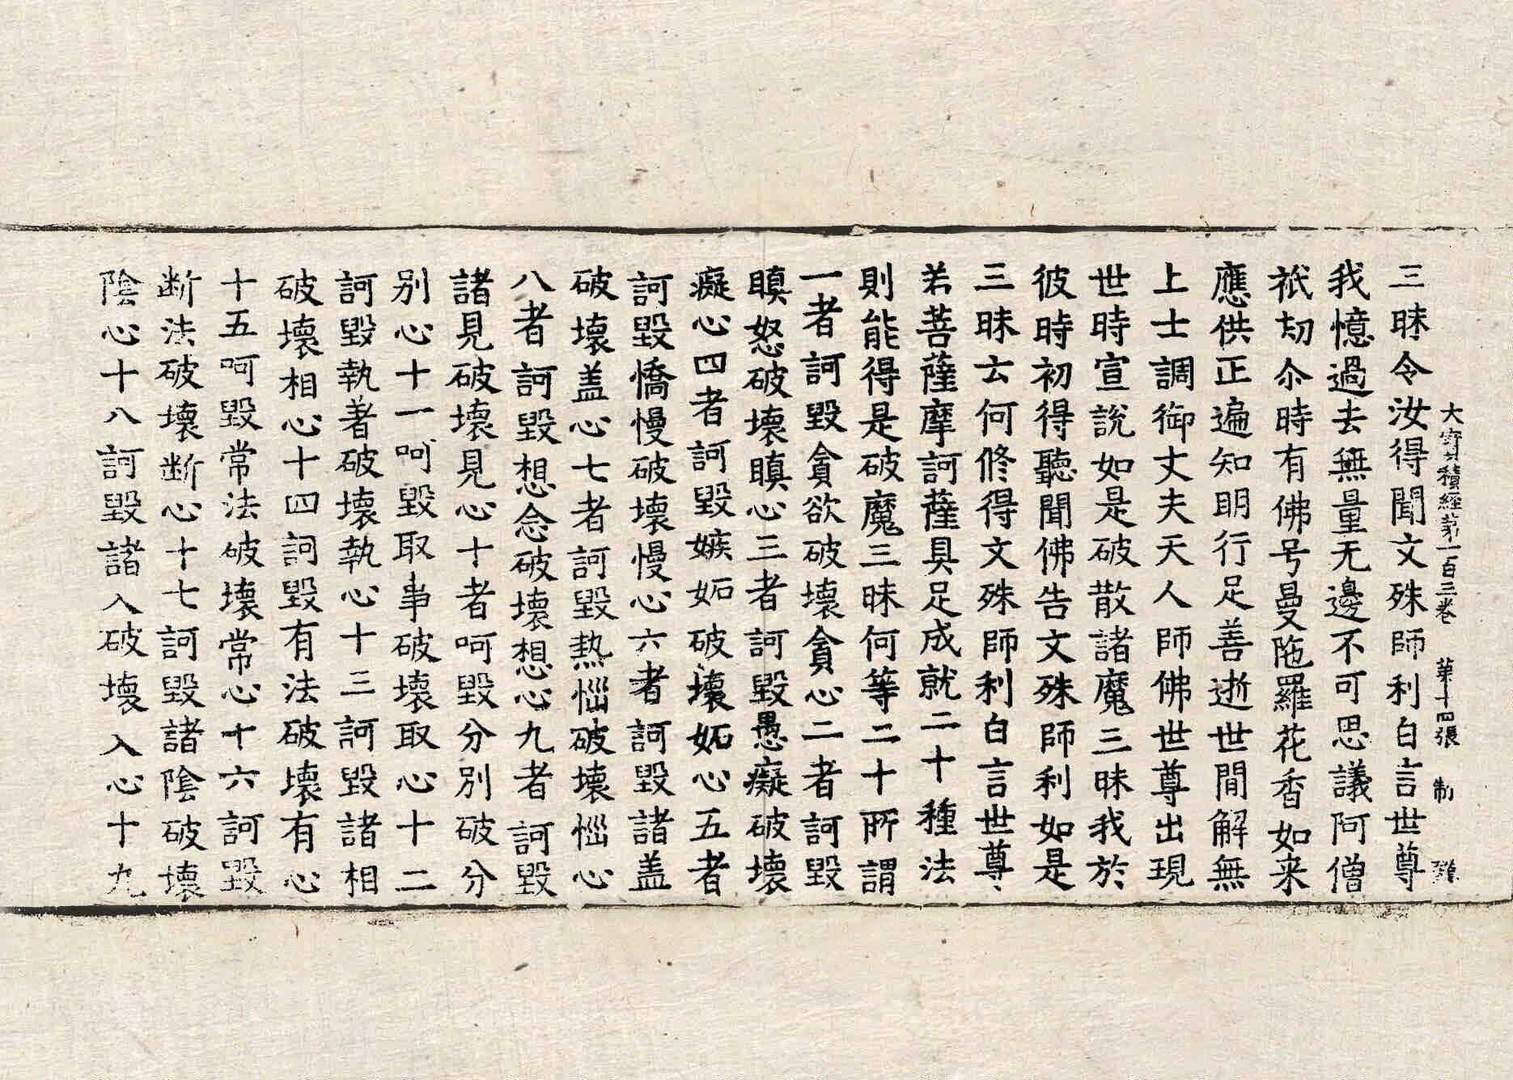 大寶積經第一百三卷 第十四張 制
三昧令汝得聞文殊師利白言世尊
我憶過去無量无邊不可思議阿僧
祇刧尒時有佛号曼陁羅花香如来
應供正遍知明行足善逝世間解無
上士調御丈夫天人師佛世尊出現
世時宣說如是破散諸魔三昧我於
彼時初得聽聞佛告文殊師利如是
三昧云何修得文殊師利白言世尊
若菩薩摩訶薩具足成就二十種法
則能得是破魔三昧何等二十所謂
一者訶毀貪欲破壞貪心二者訶毀
瞋怒破壞瞋心三者訶毀愚癡破壞
癡心四者訶毀嫉妬破壞妬心五者
訶毀憍慢破壞慢心六者訶毀諸盖
破壞盖心七者訶毀熱惱破壞惱心
八者訶毀想念破壞想心九者訶毀
諸見破壞見心十者呵毀分別破分
別心十一呵毀取事破壞取心十二
訶毀執著破壞執心十三訶毀諸相
破壞相心十四訶毀有法破壞有心
十五呵毀常法破壞常心十六訶毀
断法破壞断心十七訶毀諸陰破壞
陰心十八訶毀諸入破壞入心十九